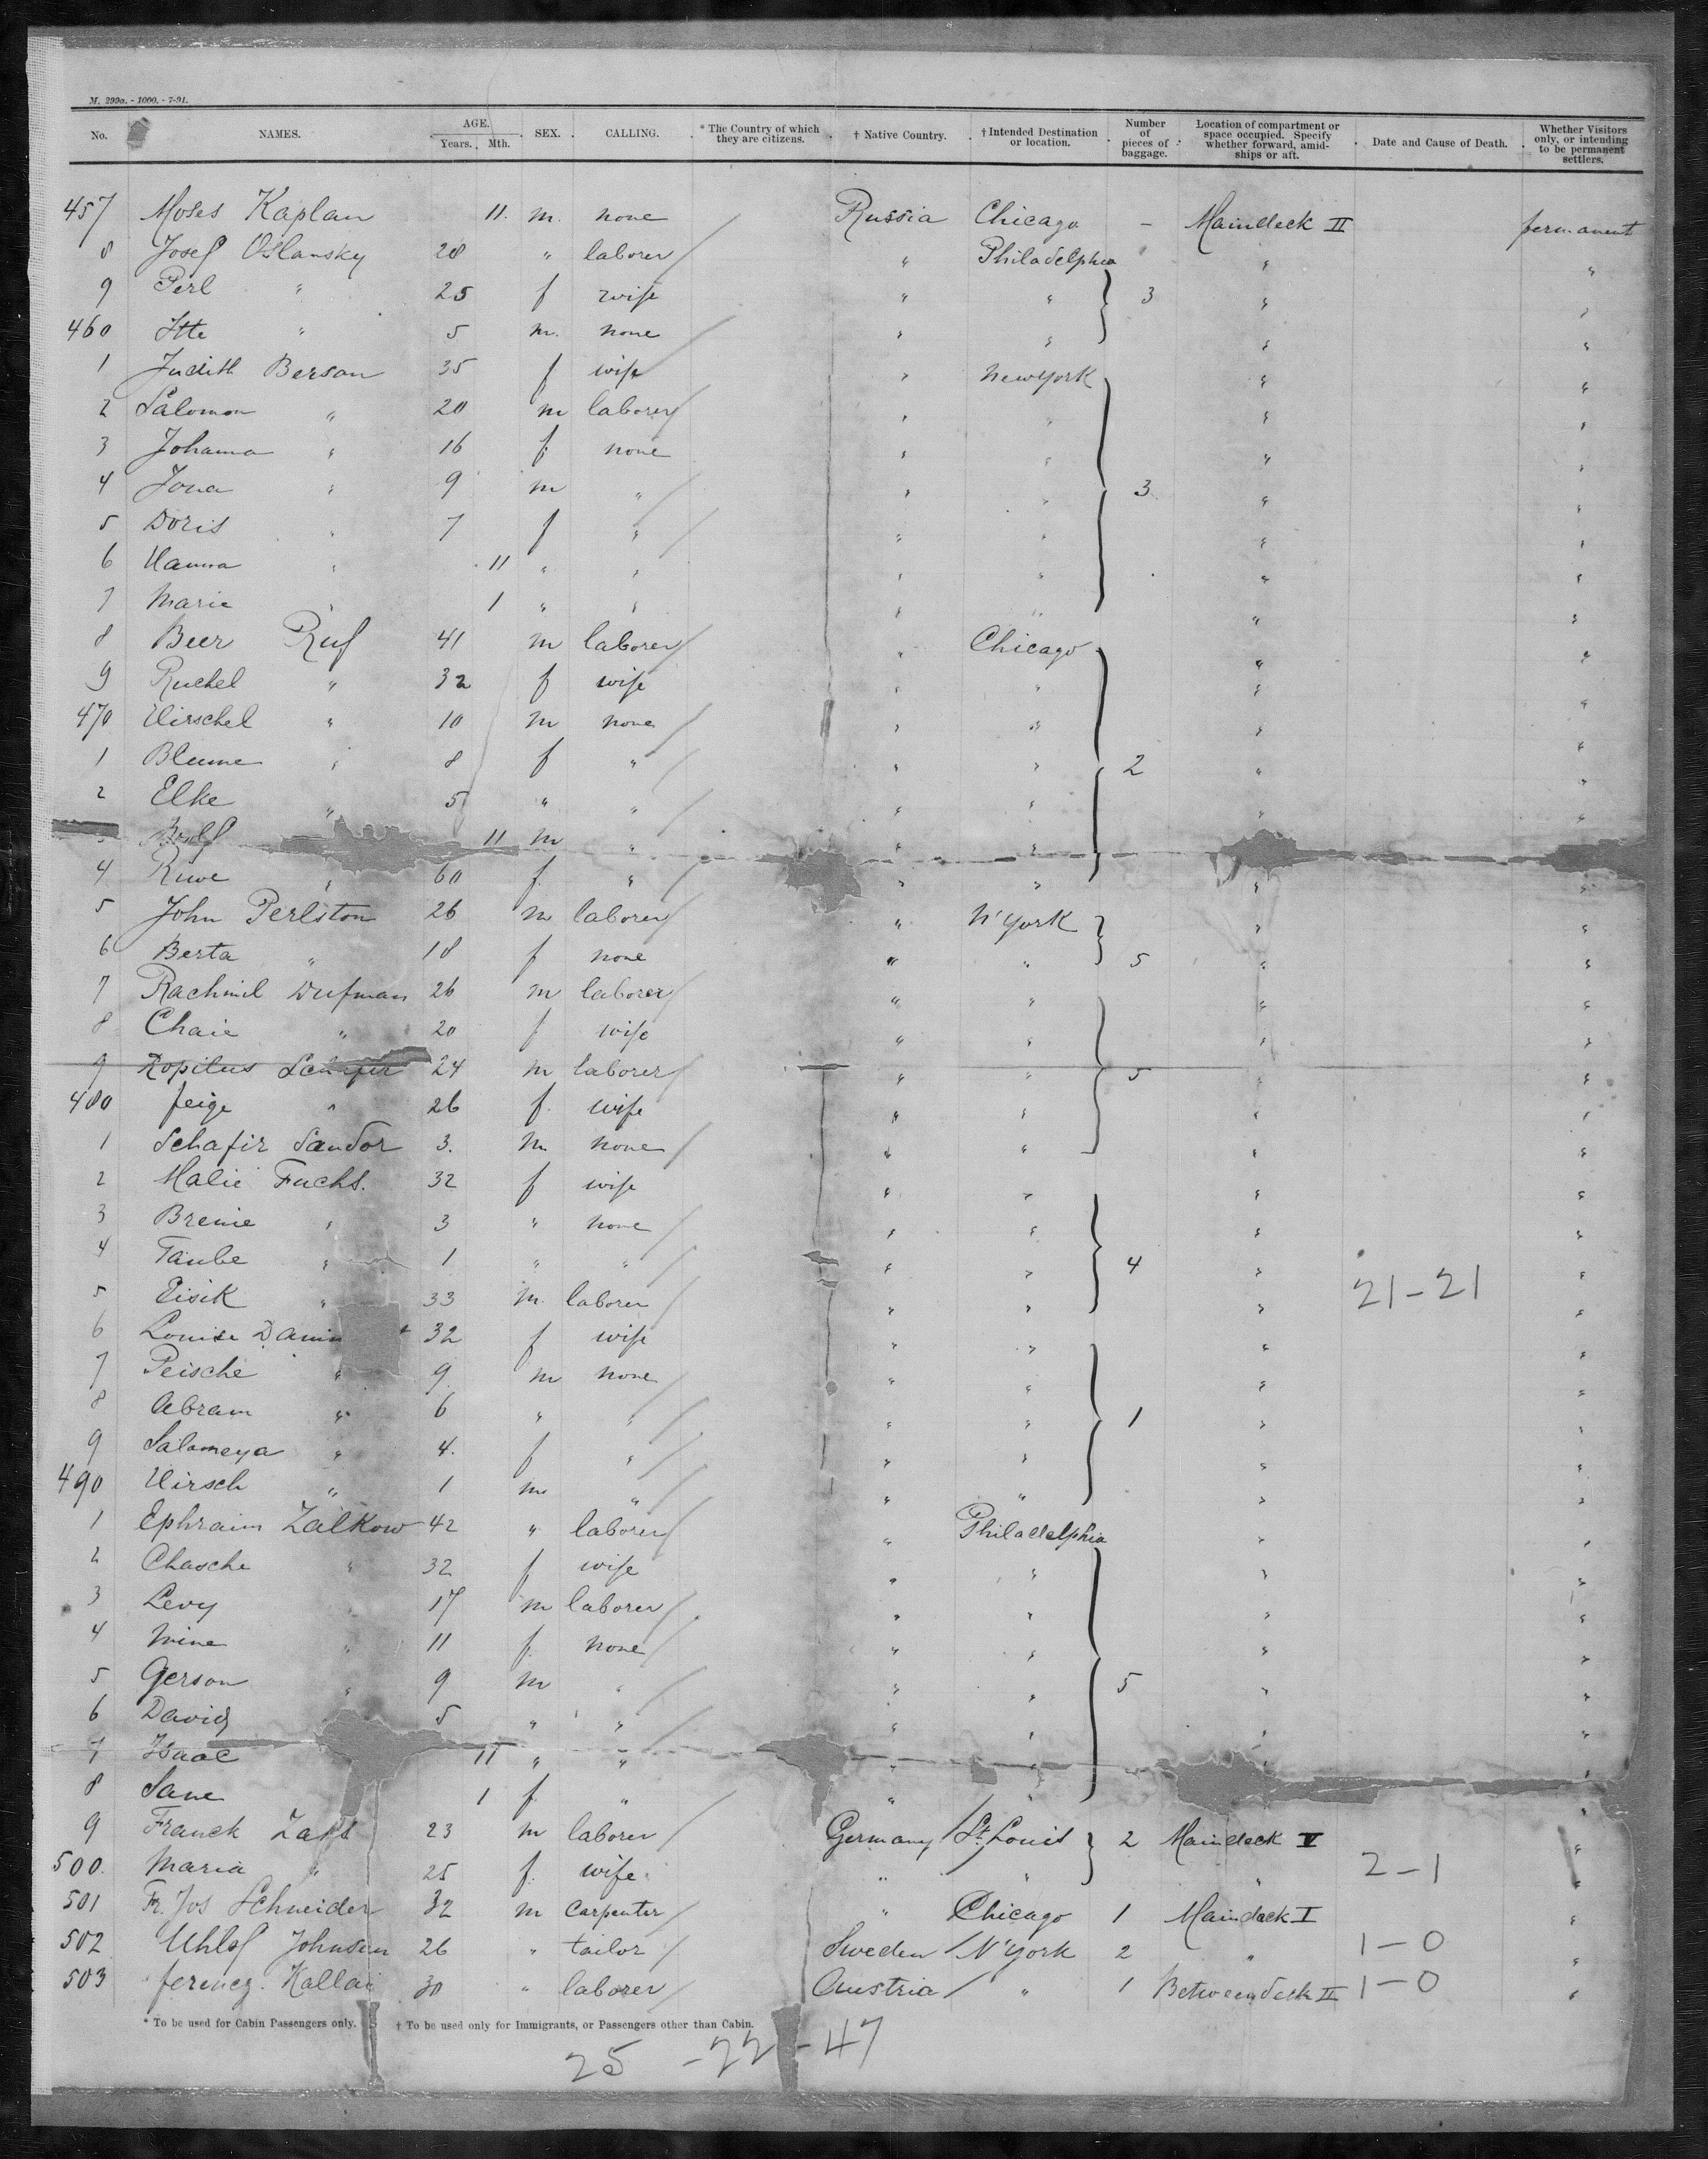 M. 299a. - 1000. - 7-91.
No. NAMES. AGE. Years. Mth. SEX. CALLING. * The Country of which they are citizens. † Native Country. † Intended Destination or location. Number of pieces of baggage. Location of compartment or space occupied. Specify whether forward, amidships or aft. Date and Cause of Death. Whether Visitors only, or intending to be permanent settlers.
457 Moses Kaplan 11. m. none Russia Chicago - Maindeck II permanent
8 Josef Oslansky 28 " laborer " Philadelphia " "
9 Perl " 25 f wife " " 3 " "
460 Itte " 5 m. none " " " "
1 Judith Berson 35 f wife " New York " "
2 Salomon " 20 m laborer " " " "
3 Johanna " 16 f. none " " " "
4 Jona " 9 m " " " 3 " "
5 Doris " 7 f " " " " "
6 Hanna " 11 " " " " " "
7 Marie " 1 " " " " " "
8 Beer Ruf 41 m laborer " Chicago " "
9 Ruchel " 32 f wife " " " "
470 Hirschel " 10 m none " " " "
1 Blume " 8 f " " " 2 " "
2 Elke " 5 " " " " " "
11 m " " "
4 Ruwe " 60 f. " " " " "
5 John Perlston 26 m laborer " N'York " "
6 Berta " 18 f none " " 5 " "
7 Rachmil Dufman 26 m laborer " " " "
8 Chaie " 20 f wife " " " "
9 Kopilus 24 m laborer " " 5 " "
480 feige " 26 f. wife " " " "
1 Schafir Sandor 3. m none " " " "
2 Malie Fuchs. 32 f wife " " " "
3 Breine " 3 " none " " " "
4 Taube " 1 " " " " 4 " "
5 Eisik " 33 m. laborer " " " 21-21 "
6 Louise 32 f wife " " " "
7 Peische " 9 m none " " " "
8 Abram " 6 " " " " 1 " "
9 Salomeya " 4. f " " " " "
490 Hirsch " 1 m " " " " "
1 Ephraim Zalkow 42 " laborer " Philadelphia " "
2 Chasche " 32 f wife " " " "
3 Levy " 17 m laborer " " " "
4 Mine " 11 f. none " " " "
5 Gerson " 9 m " " " 5 " "
6 David " 5 " " " " " "
7 Isaac 11 " " " " "
8 Sane 1 f. " " " "
9 Franck Zaks 23 m laborer Germany St. Louis 2 Maindeck V "
500. Maria " 25 f. wife " " " 2-1
501 Fr. Jos Schneider 32 m carpenter " Chicago 1 Maindeck I "
502 Uhlof Johnson 26 " tailor Sweden N'York 2 " 1-0 "
503 ferencz. Kallai 30 " laborer Austria " 1 Betweendeck II 1-0 "
* To be used for Cabin Passengers only. † To be used only for Immigrants, or Passengers other than Cabin.
25 - 22 - 47